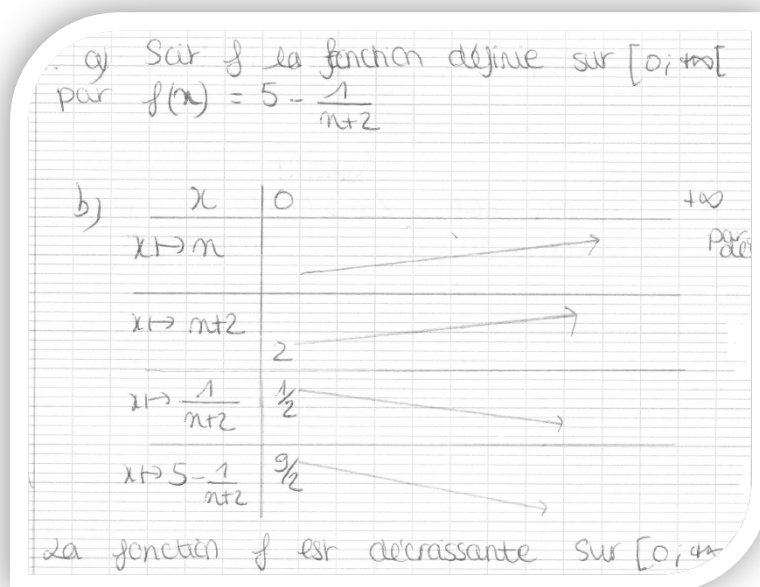 a) Soit f la fonction définie sur [0; +∞[
par f(x) = 5 - 1/(n+2)
b) x | 0 +∞
x ↦ n
par
x ↦ n+2 | 2
x ↦ 1/(n+2) | 1/2
x ↦ 5 - 1/(n+2) | 9/2
La fonction f est décraissante sur [0; +∞